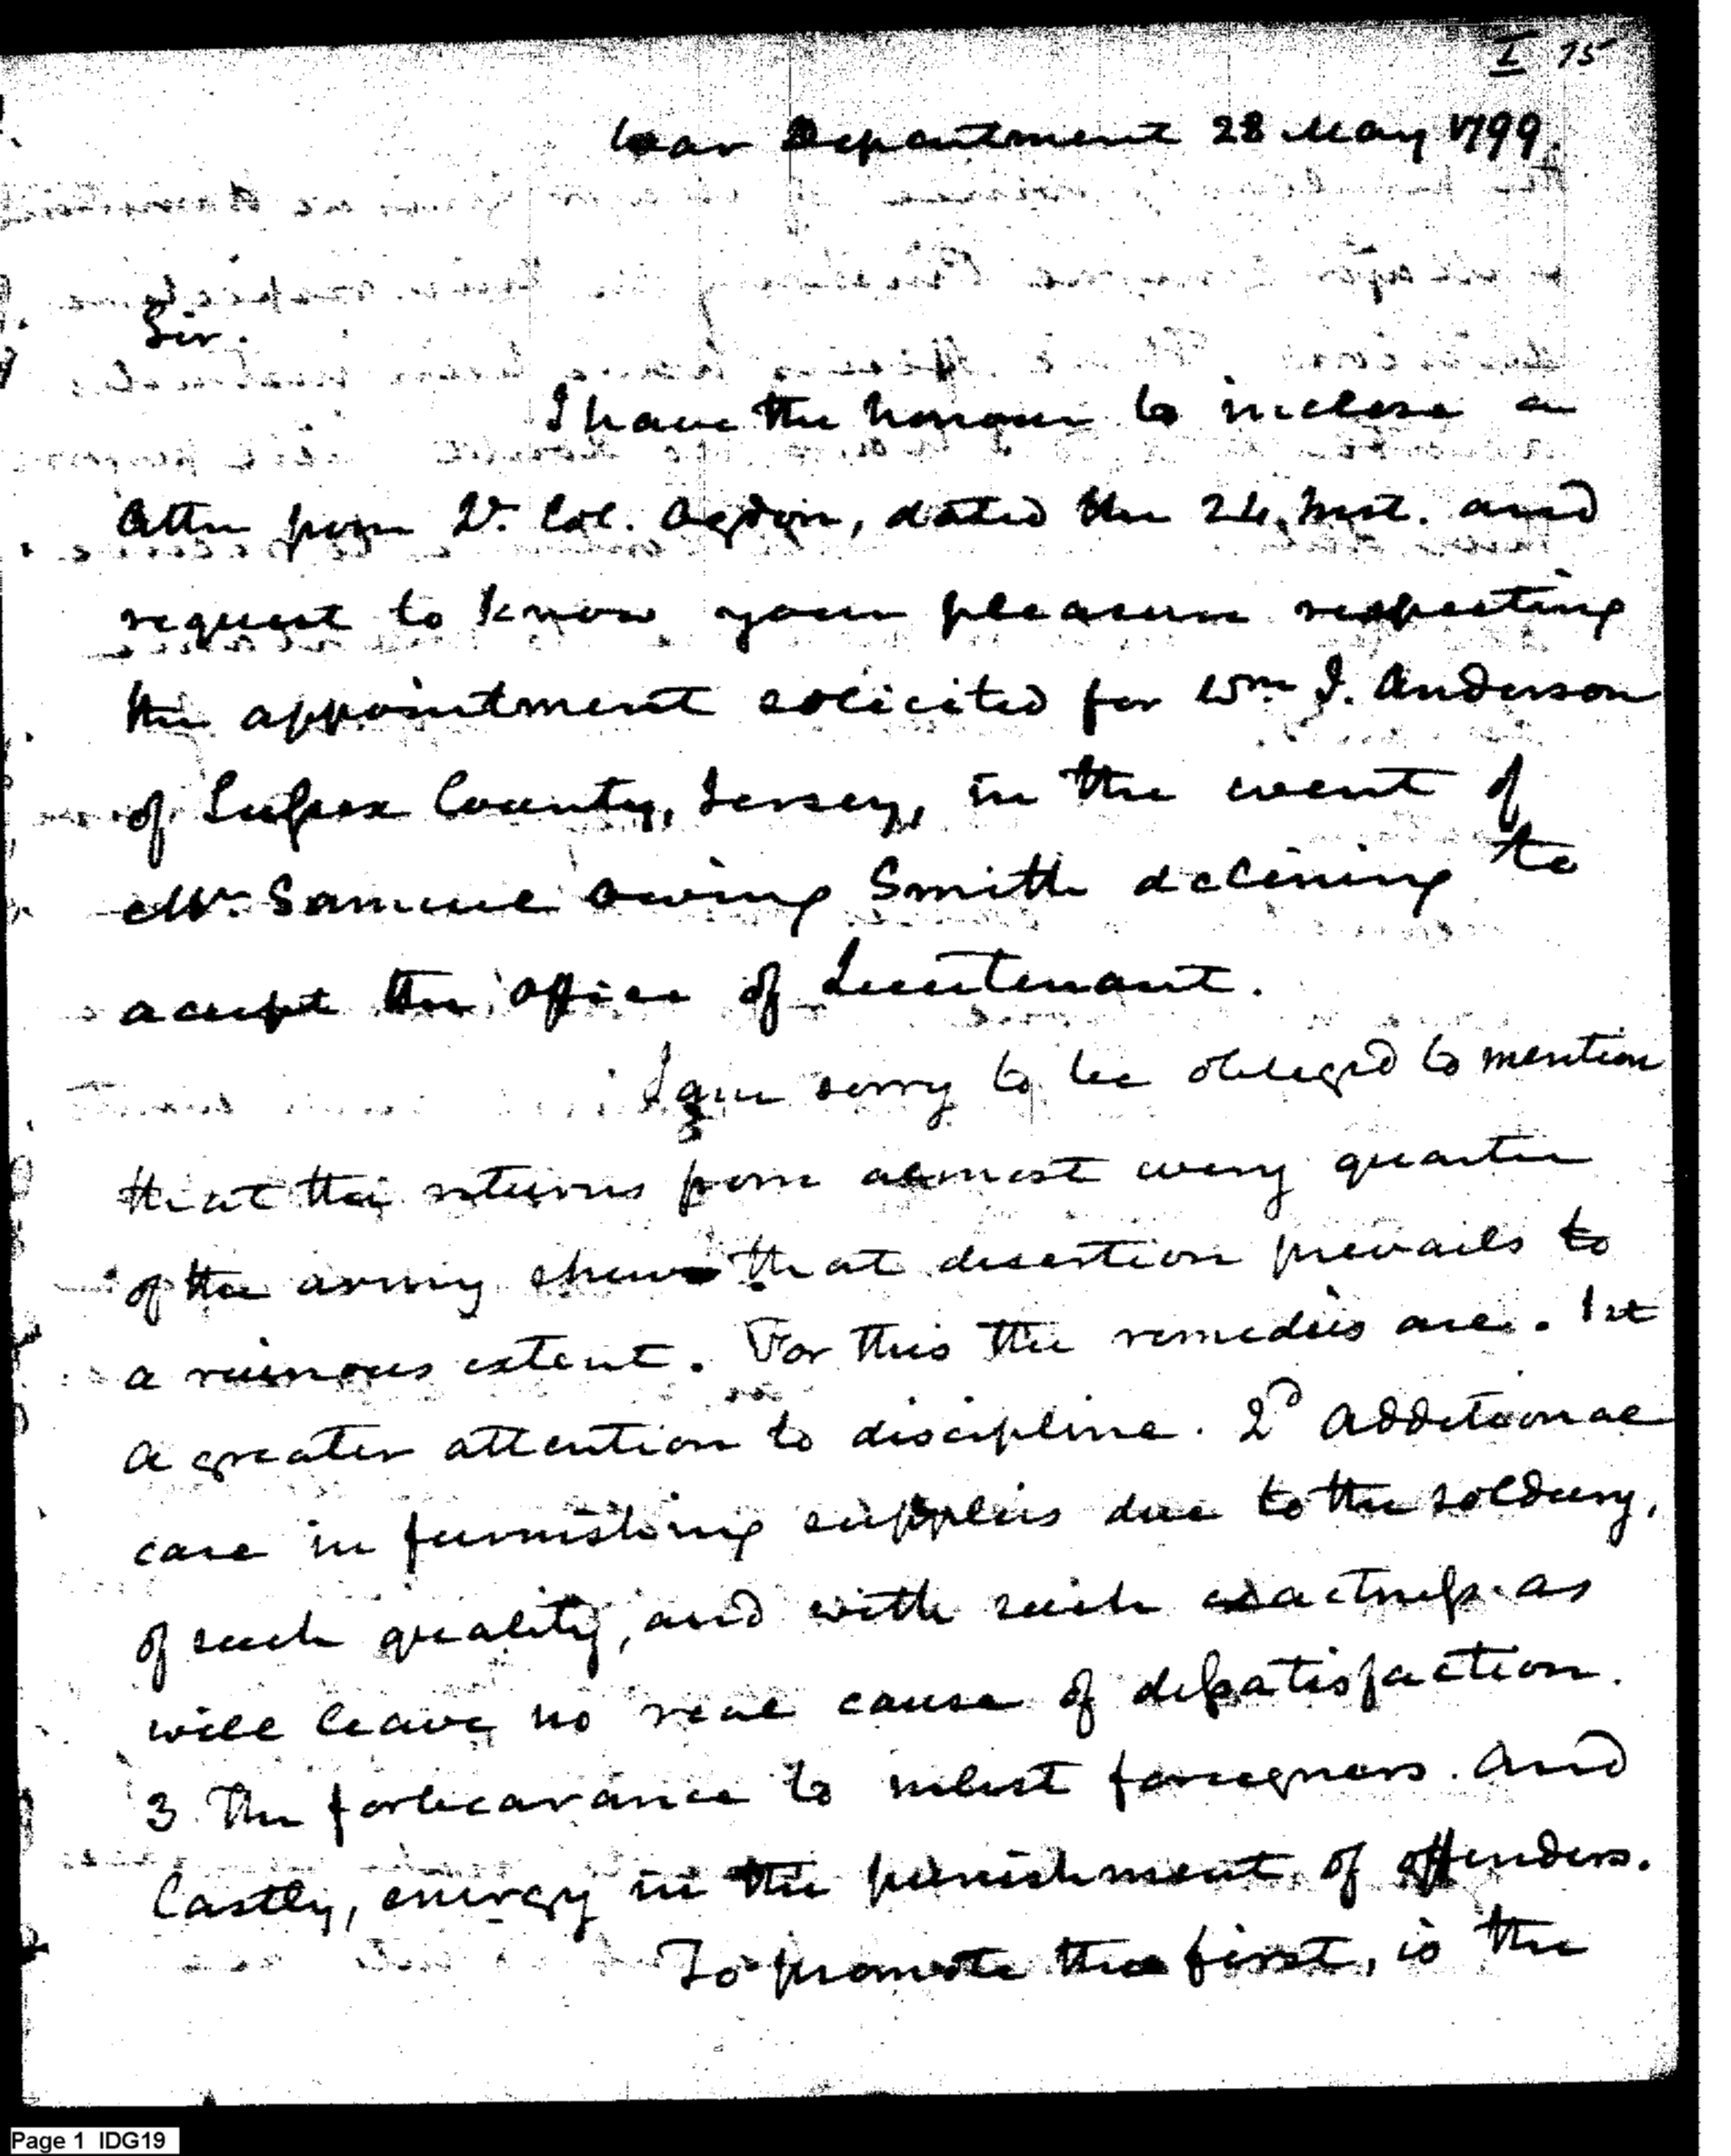 I 75
War Department 28 May 1799.
Sir.
I have the honour to inclose a
letter from Lt. Col. Ogden, dated the 24, Inst. and
request to know your pleasure respecting
the appointment solicited for Wm J. Anderson
of Sussex County, Jersey, in the event of
Mr. Samuel Owing Smith declining to
accept the office of Lieutenant.
I am sorry to be obliged to mention
that the returns from almost every quarter
of the army shew that desertion prevails to
a ruinous extent. For this the remedies are. 1st
a greater attention to discipline. 2d Additional
care in furnishing supplies due to the soldiery,
of such quality, and with such exactness as
will leave no real cause of dissatisfaction.
3 The forbearance to inlist foreigners. And
lastly, energy in the punishment of offenders.
To promote the first, is the
Page 1 IDG19